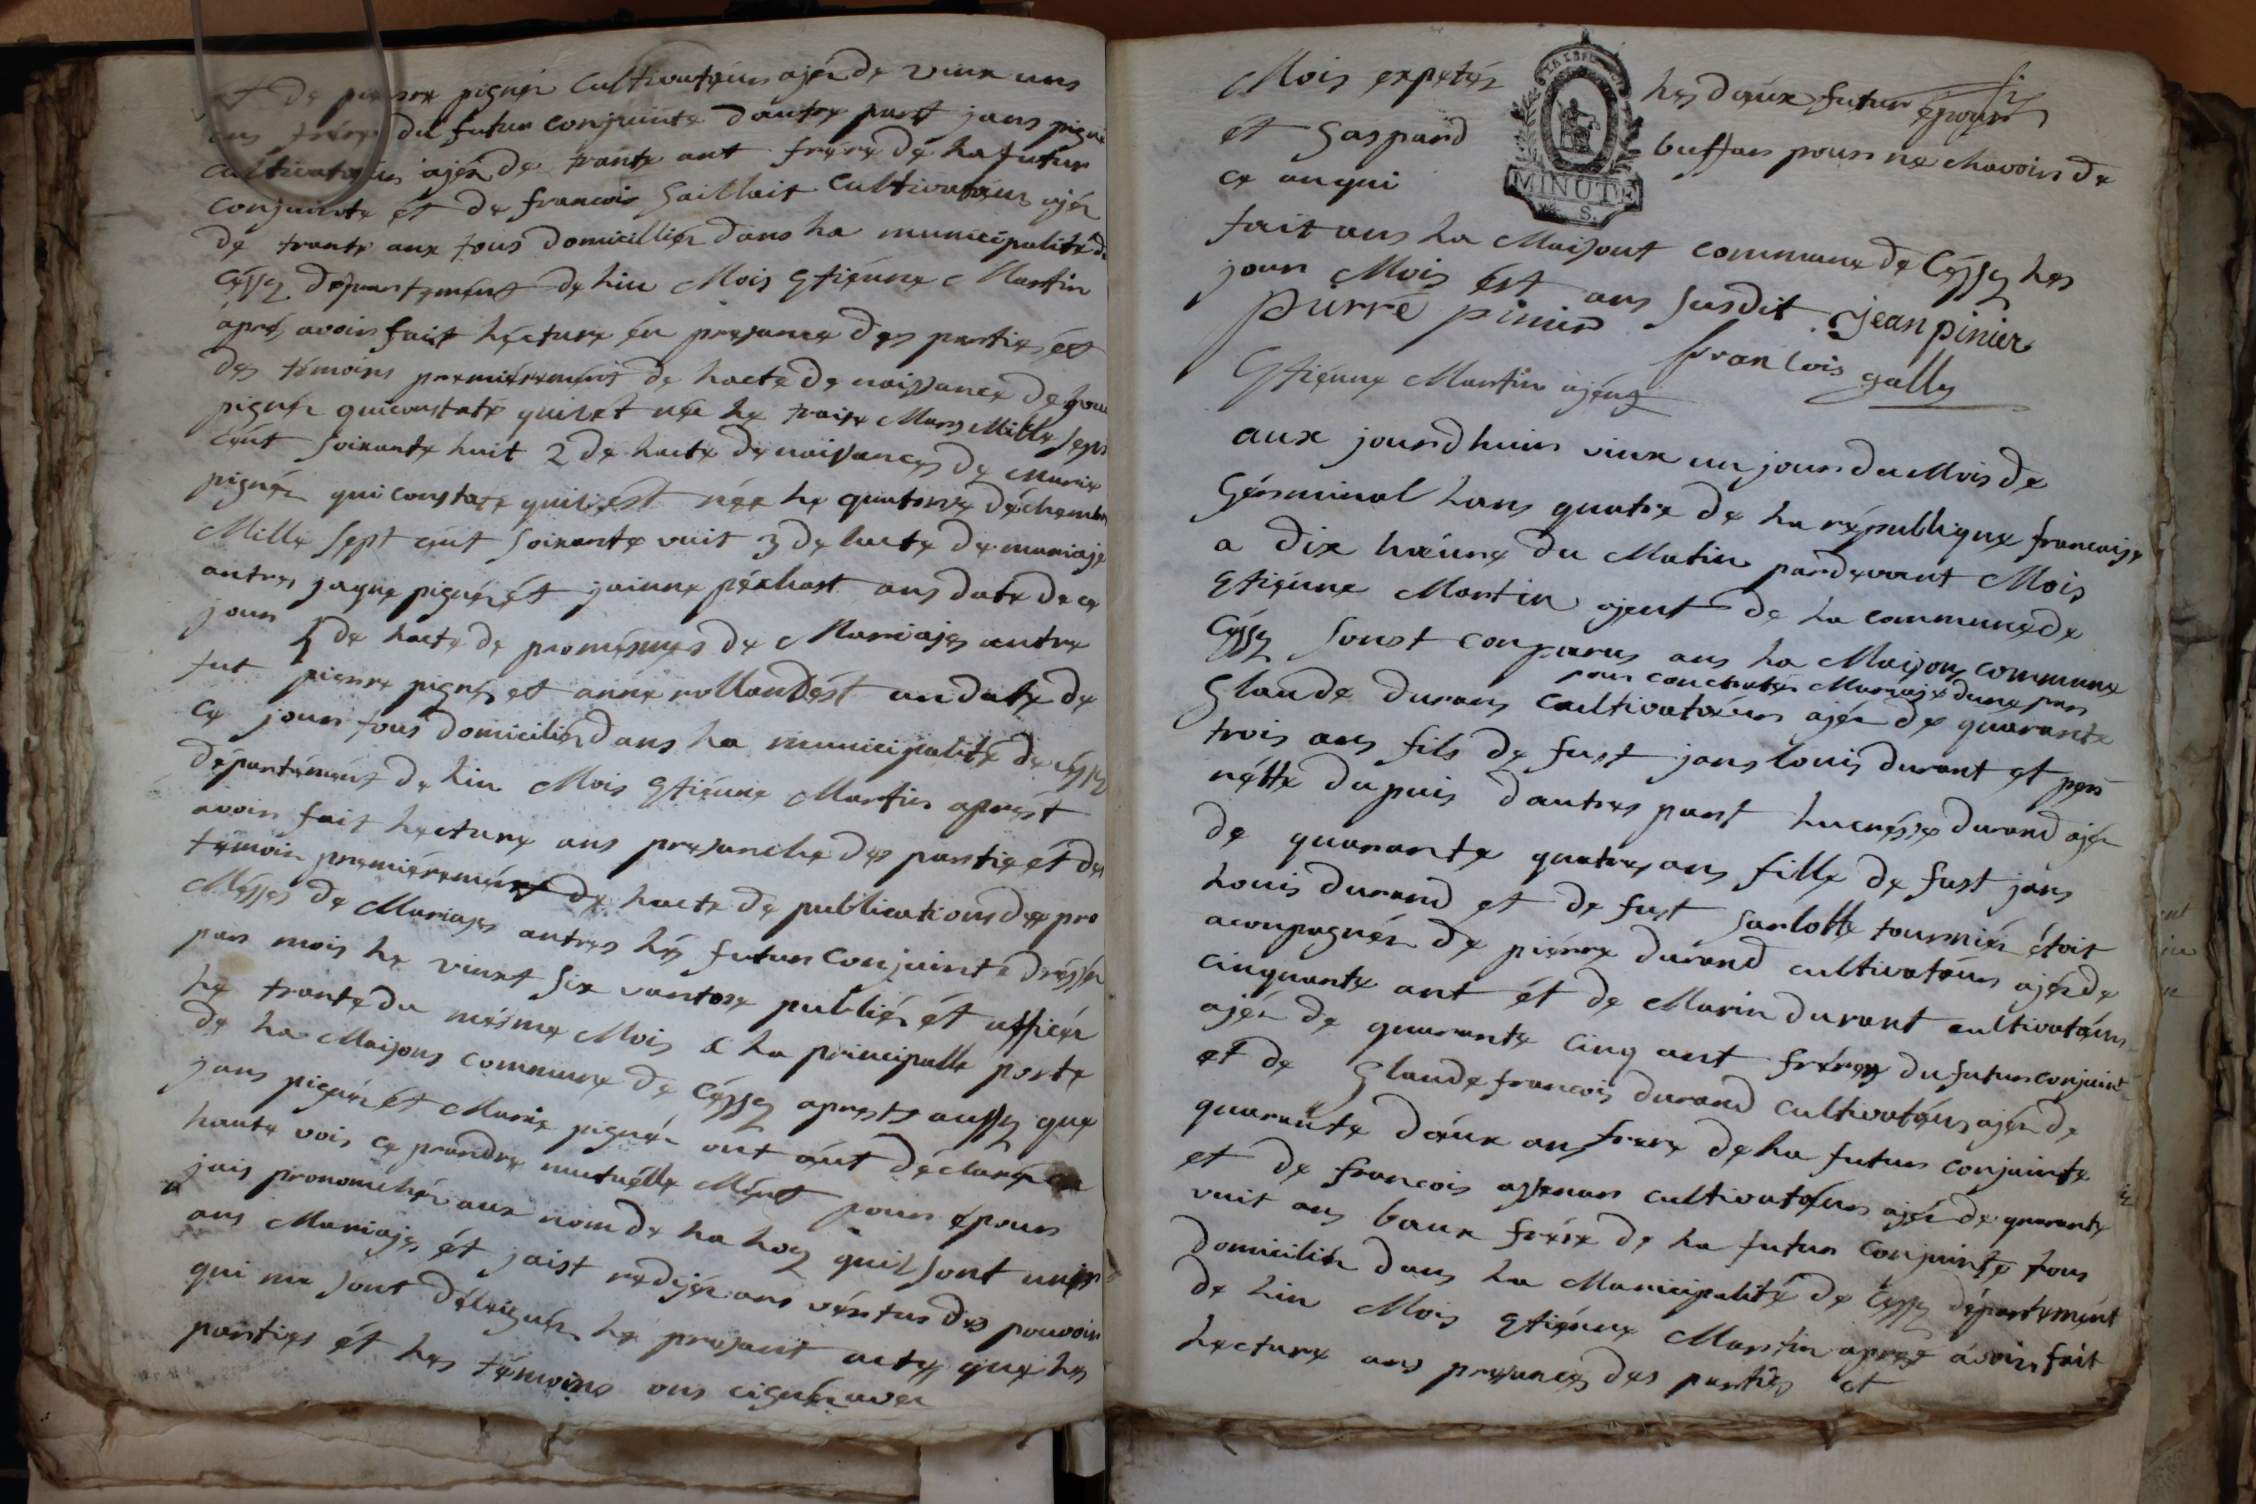 et de pierre pignér cultivatéurs ajér de vint uns
ans frére du futur conjuinte dautre part jans pignér
cultivatéurs ajér de trante ant frére dé ha futur
conjuinte ét de francois Gaillait cultivatéurs ajér
de trante aux tous domicillier dans ha municipalité de
Céssy départemént de hin Mois Etiénne Martin
aprés avoir fait hécture én presance des partiés ét
des témoins premiérement de hacte de naissance de
pignér quiconstate quil et née he traise Mars Mille sept
cént soixante huit 2 de hacte de naissances de Marie
pignér qui constate quil est née he quatorze déchembre
Mille sept cént soixante vuit 3 de hacte de mariaje
antres jaque pignér ét jainne péchast ans date de ce
jour 4 de hacte de promésses de Mariajes antre
fut pierre pignér et anne rolland ést an date de
ce jour tous domicilier dans ha municipalité de céssy
départémént de hin Mois Etiénne Martin aprést
avoir fait hecture ans presanche des partie ét des
témoin premiéremént de hacte de publications des pro
Mésses de Mariajes antres hés futur conjuinte drésser
par mois he vint six vantose publiér ét affiér
he trante du mésme Mois a ha principalle porte
de ha Maisons commune de Céssy aprests aussy que
jans pignér ét Marie pignér ont aut déclarér
haute vois ce prandre mutuélle Mént pour épour
jais pronomchér aux nom de ha hoy quil sont unis
ans Mariajes ét jaist redijér ans vértus des pouvoir
qui me sont déléguér hé presant acte que hes
parties ét hes témoins ons cignér aver
Mois expetés hes deux futur épouse
ét Gaspard buffas pour ne chavoir de
ce anqui
MINUTE
S.
fait ans ha Maisont commune de Céssy hes
jour Mois ést ans susdit Jean pinier
pierre pinier
francois gally
Etiénne Martin ajént
aux jourdhuis vint un jour du Mois de
Gérminal hans quatre de ha république francaise
a dix heúre du Matin pardevant Mois
Etiénne Martin ajent de ha commune de
Céssy sonst conparus ans ha Maisons commune
pour conchuter Mariaje dune part
Glaude durans cultivatéurs ajér de quarante
trois ans fils de fust jans louis durant et pér
nétte dupuis dautres part hucrésse durand ajér
de quarante quatres ans fille de fust jans
houis durand et de fust sarlotte tournier étoit
aconpagnér de piérre durand cultivatéurs ajér de
cinquante ant ét de Marin durant cultivatéurs
ajér de quarante cinq ant fréres du futur conjuint
et de Glaude francois durand cultivatéurs ajér de
quarante deux ans frere de ha futur conjuinte
et de francois cultivatéurs ajér de quarante
vuit ans baux frére de ha futur conjuinte tous
domicilier dans ha Municipalité de Céssy départemént
de hin Mois Etiénne Martin aprés avoir fait
hecture ans presances des partiés et